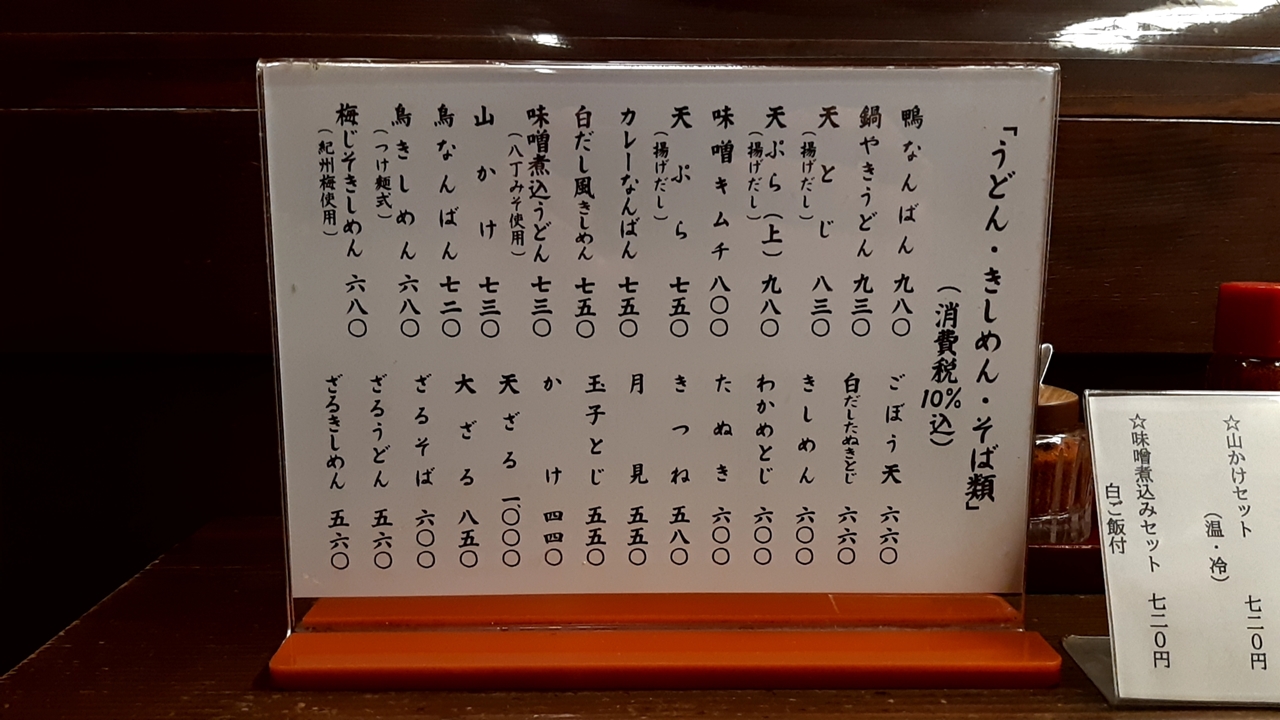 「うどん・きしめん・そば類」
（消費税10％込）
鴨なんばん 九八〇
鍋やきうどん 九三〇
天とじ 八三〇
（揚げだし）
天ぷら（上） 九八〇
（揚げだし）
味噌キムチ 八〇〇
天ぷら 七五〇
（揚げだし）
カレーなんばん 七五〇
白だし風きしめん 七五〇
味噌煮込うどん 七三〇
（八丁みそ使用）
山かけ 七三〇
鳥なんばん 七二〇
鳥きしめん 六八〇
（つけ麺式）
梅じそきしめん 六八〇
（紀州梅使用）
ごぼう天 六六〇
白だしたぬきとじ 六六〇
きしめん 六〇〇
わかめとじ 六〇〇
たぬき 六〇〇
きつね 五八〇
月見 五五〇
玉子とじ 五五〇
かけ 四四〇
天ざる 一、〇〇〇
大ざる 八五〇
ざるそば 六〇〇
ざるうどん 五六〇
ざるきしめん 五六〇
☆山かけセット 七二〇円
（温・冷）
☆味噌煮込みセット 七二〇円
白ご飯付